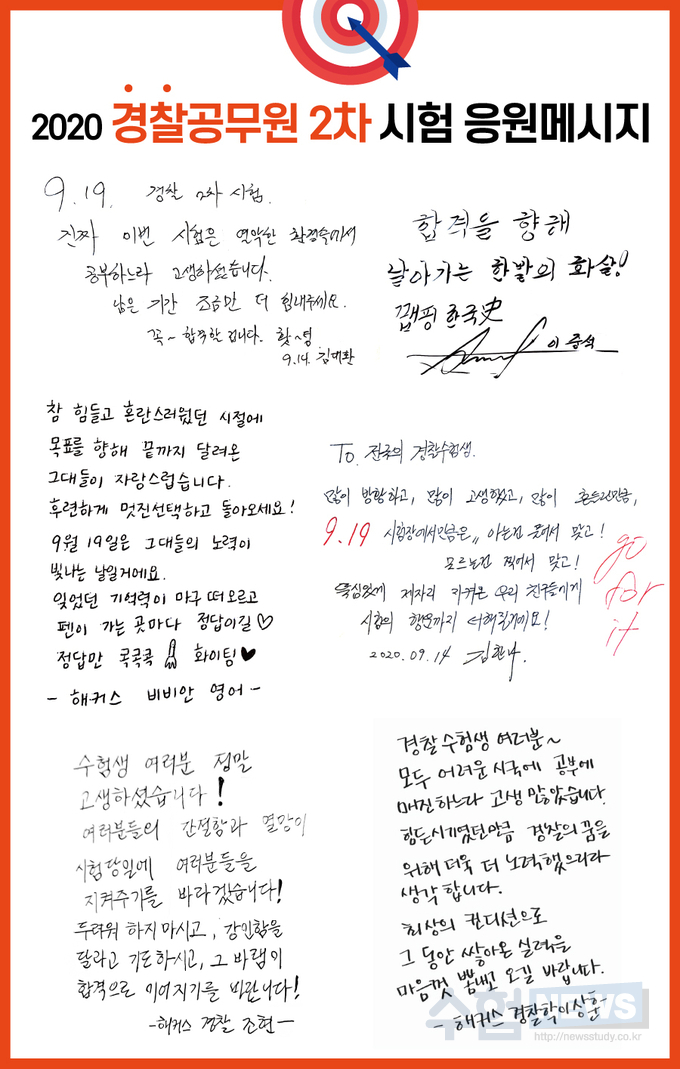 2020 경찰공무원 2차 시험 응원메시지
9.19. 경찰 2차 시험.
진짜 이번 시험은 열악한 환경속에서
공부하느라 고생하셨습니다.
남은 기간 조금만 더 힘내주세요.
꼭~ 합격할 겁니다. 홧~팅
9.14. 김대환
합격을 향해
날아가는 한발의 화살!
깸핑 한국史
이중석
참 힘들고 혼란스러웠던 시절에
목표를 향해 끝까지 달려온
그대들이 자랑스럽습니다.
후련하게 멋진선택하고 돌아오세요!
9월 19일은 그대들의 노력이
빛나는 날일거에요.
잊었던 기억력이 마구 떠오르고
펜이 가는 곳마다 정답이길♡
정답만 콕콕콕 화이팅♥
- 해커스 비비안 영어 -
To. 전국의 경찰수험생.
많이 방황하고, 많이 고생했고, 많이 흔들린만큼,
9.19 시험장에서만큼은,, 아는건 풀어서 맞고!
모르는건 찍어서 맞고!
열심있게 제자리 지켜온 우리 친구들에게
시험의 행운까지 더해질거예요!
2020.09.14
go
for
it
수험생 여러분 정말
고생하셨습니다!
여러분들의 간절함과 열망이
시험당일에 여러분들을
지켜주기를 바라겠습니다!
두려워 하지 마시고, 강인함을
달라고 기도하시고, 그 바램이
합격으로 이어지기를 빕니다!
-해커스 경찰 조현-
경찰수험생 여러분~
모두 어려운 시국에 공부에
매진하느라 고생 많았습니다.
힘든시기였던만큼 경찰의 꿈을
위해 더욱 더 노력했으리라
생각합니다.
최상의 컨디션으로
그 동안 쌓아온 실력을
마음껏 뽐내고 오길 바랍니다.
- 해커스 경찰학 이상훈
수험NEWS
http://newsstudy.co.kr